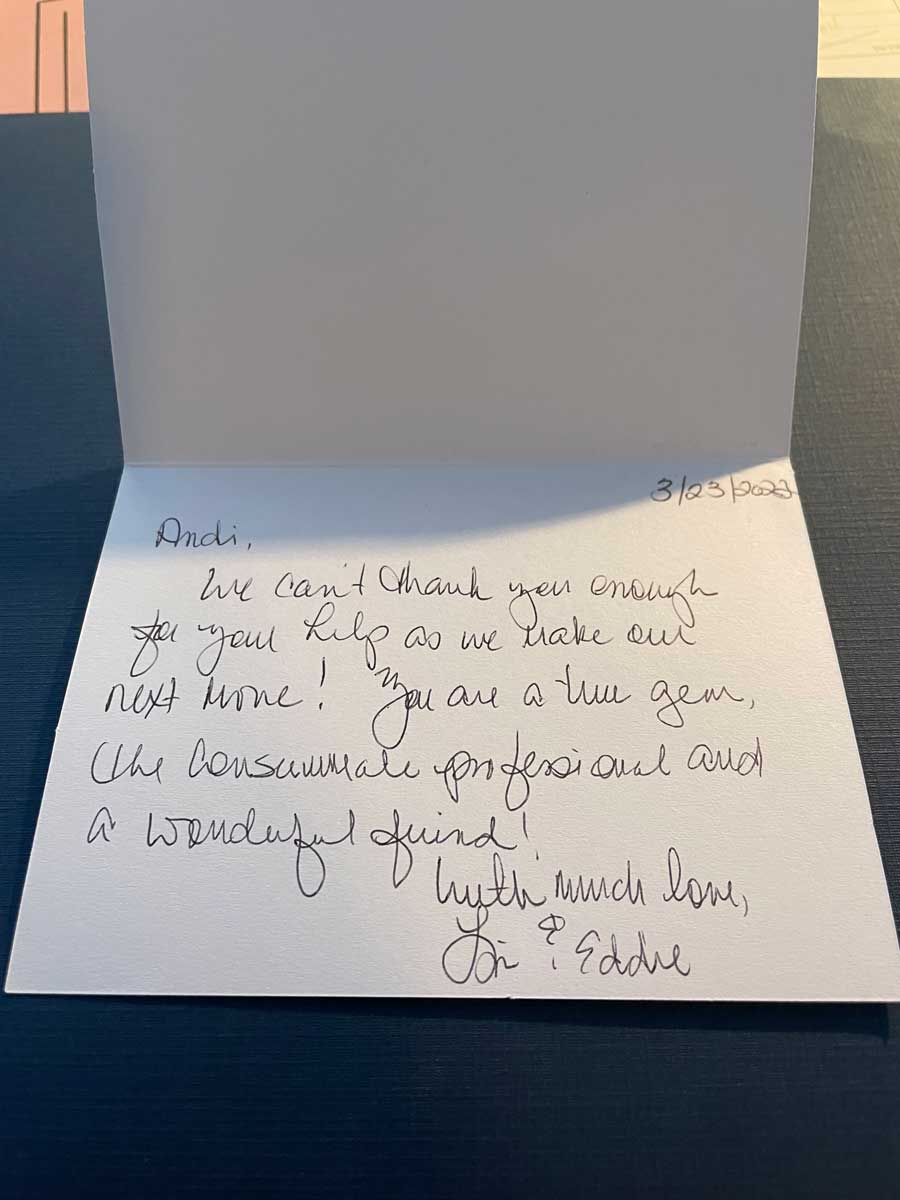 3/23/2023
Andi,
We can't thank you enough
for your help as we make our
next move! You are a true gem,
the consummate professional and
a wonderful friend!
With much love,
Lori & Eddie